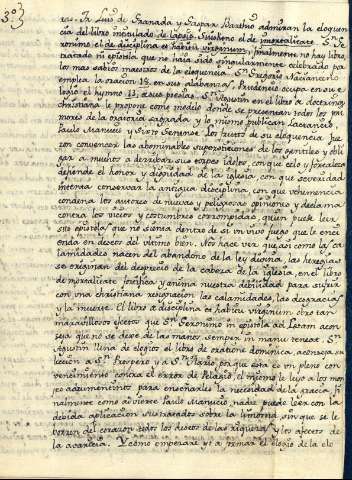 3º}
rea. Fr Luis de Granada y Gaspar Barthio admiran la eloquen
cia del libro intitulado de lapsis. Suisleno el de mortalitate. Sn Ge
ronimo el de disciplina et habitu virginum; finalmente no hay libro,
tratado ni epistola que no haia sido singularmente celebrado por
los mas sabios maestros de la eloquencia. Sn Gregorio Nazianceno
emplea la oracion 18. en sus alabanzas, Prudencio ocupa en su e-
logio el hymno 13. Sn Agustin en el libro de doctrina
christiana le propone como modelo donde se presentan todos los pri-
mores de la oratoria sagrada y lo mismo publican Lactancio,
Paulo Manucio y Sixto Senense. Los frutos de su eloquencia fue-
ron convencer las abominables supersticiones de los gentiles y obli-
gar a muchos a derribar sus torpes idolos, con que celo y fortaleza
defiende el honor y dignidad de la iglesia, con que severidad
intenta conservar la antigua disciplina, con que vehemencia
condena los autores de nuevas y peligrosas opiniones y declama
contra los vicios y costumbres corrompidas, quien puede leer
su epistola que no sienta dentro de si un vivo fuego que le enci
enda en deseos del ultimo bien. Nos hace ver que asi como las ca-
lamidades nacen del abandono de la ley divina, las heregias
se originan del desprecio de la cabeza de la iglesia, en el libro
de mortalitate fortifica y anima nuestra debilidad para sufrir
con una christiana resignacion las calamidades, las desgracias
y la muerte. El libro de disciplina et habitu virginum obro tan
maravillosos efectos que Sn Geronimo in epistola ad Letam acon
seja que no se deje de las manos semper in manu teneat. Sn
Agustin llena de elogios el libro de oratione dominica, aconseja su
leccion a Sn Prospero y a Sn Ilario porque esta es un pleno con
vencimiento contra el error de Pelagio, el mismo le leyo a los mon
ges adrumentinos para enseñarles la necesidad de la gracia. Fi
nalmente como advierte Paulo Manucio nadie puede leer con la
debida aplicacion sus tratados sobre la limosna, sin que se le
borren del corazon todos los deseos de las riquezas y los afectos de
la avaricia. Y como emperare yo a formar el elogio de la elo